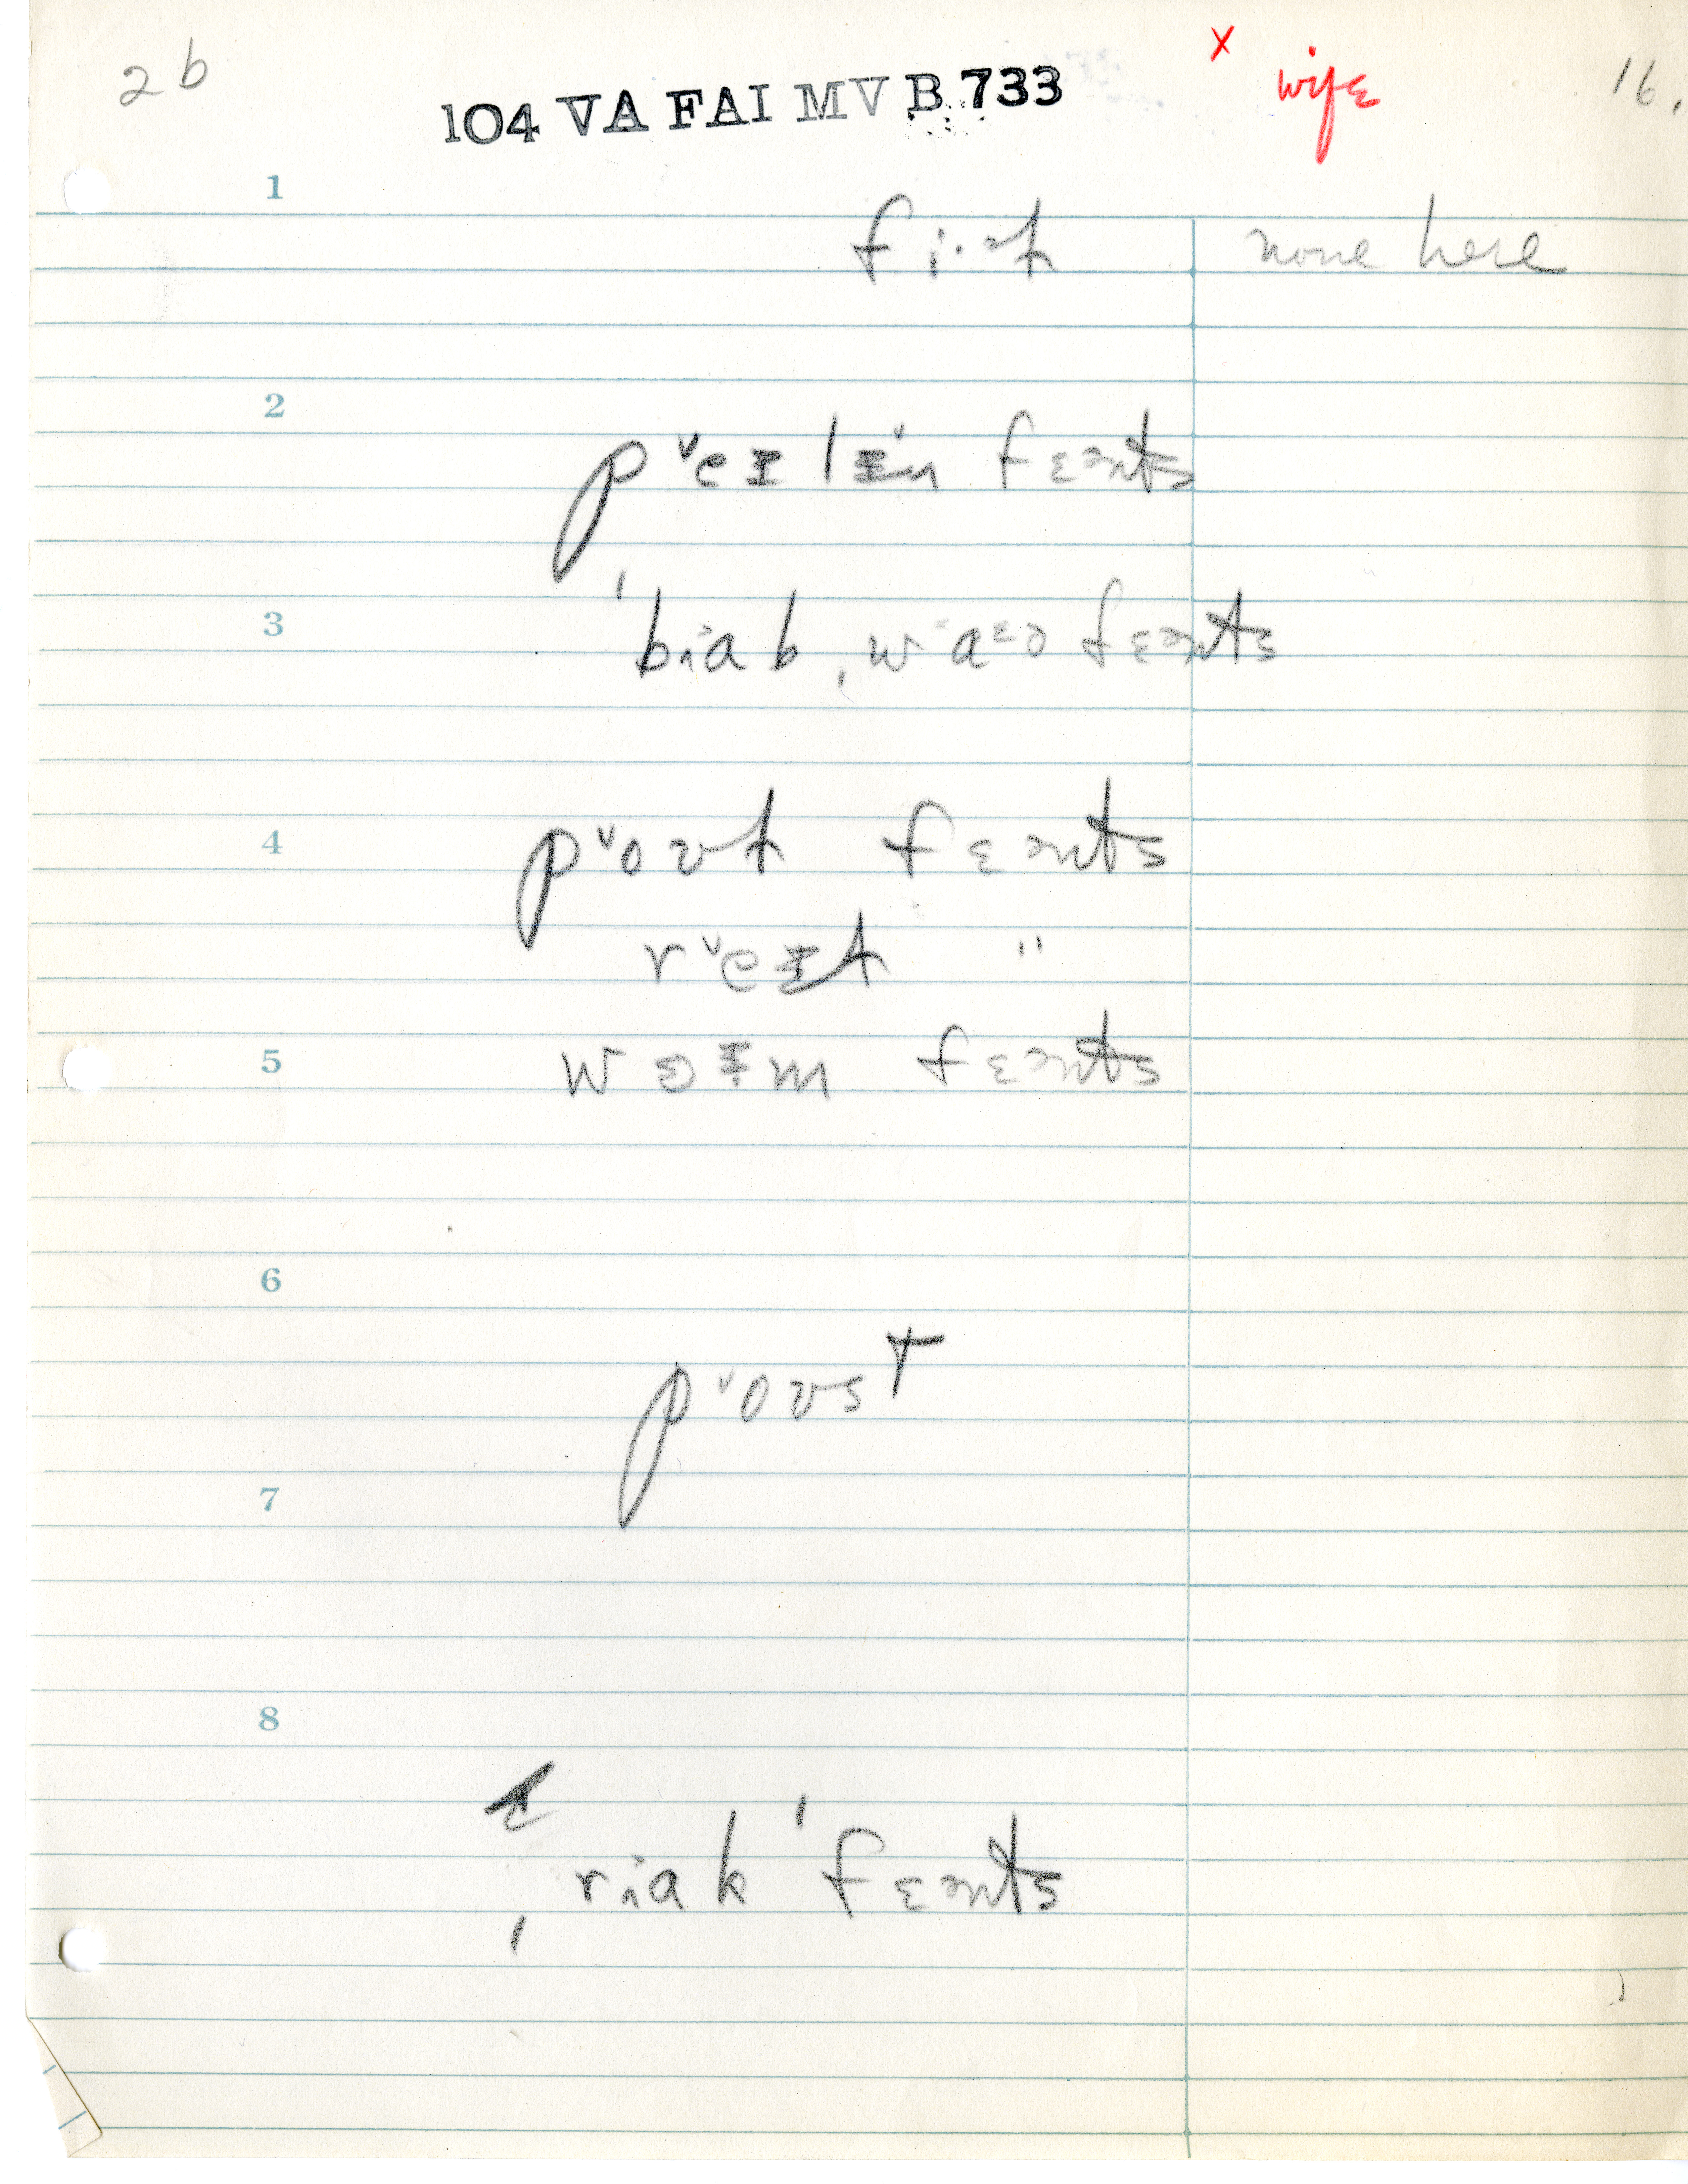 2b
104 VA FAI MV B 733
x wife
16.
1
none here
2
pᵛeɪlɪn fɛənts
3
ˈbɑb ˌwaɛə fɛənts
4
pᵛoʊt fɛənts
rᵛeɪt "
5
fɛənts
6
pᵛoʊst
7
8
ˌrɑkˈ fɛənts